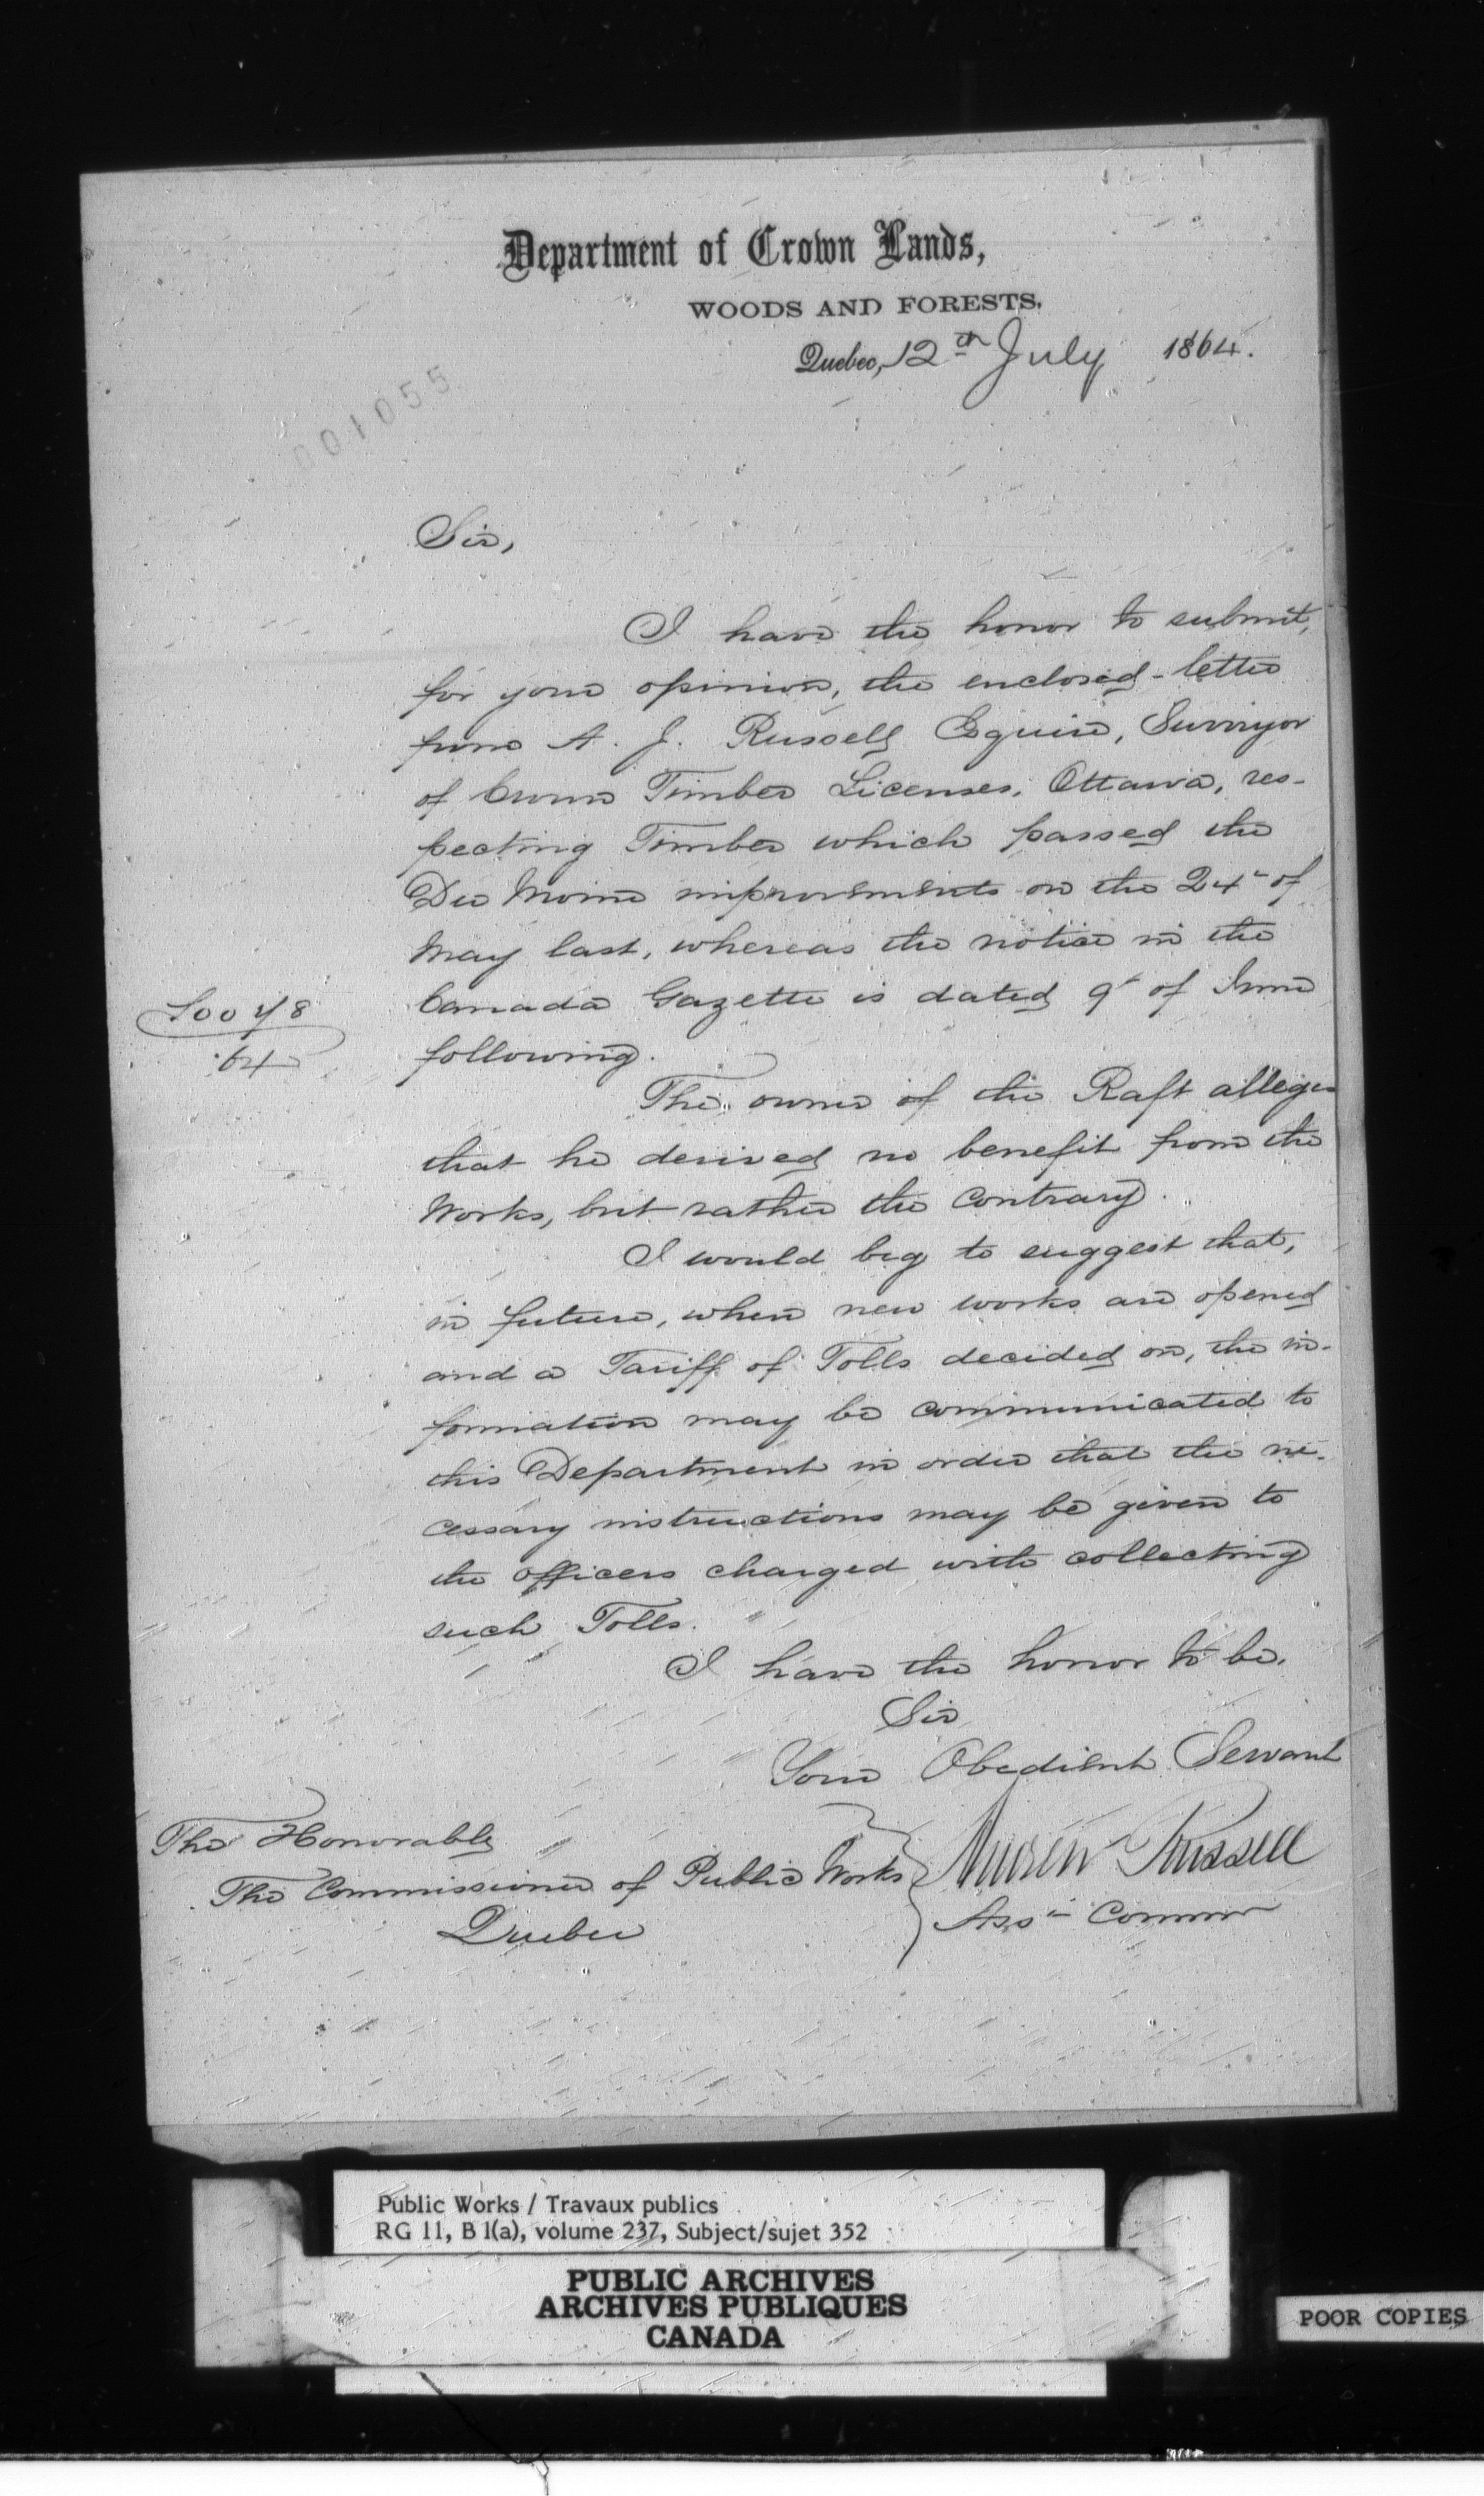 Department of Crown Lands,
WOODS AND FORESTS.
Quebec, 12th July 1864.
001055
Sir,
I have the honor to submit,
for your opinion, the enclosed letter
from A. J. Russell Esquire, Surveyor
of Crown Timber Licenses, Ottawa, res-
pecting Timber which passed the
Du Moine improvements on the 24th of
May last, whereas the notice in the
Canada Gazette is dated 9th of June
following.
64
The owner of the Raft alleges
that he derived no benefit from the
Works, but rather the contrary.
I would beg to suggest that,
in future, when new works are opened
and a Tariff of Tolls decided on, the in-
formation may be communicated to
this Department in order that the ne-
cessary instructions may be given to
the Officers charged with collecting
such Tolls.
I have the honor to be,
Sir
Your Obedient Servant
Andrew Russell
Asst Commr
The Honorable
The Commissioner of Public Works
Quebec
Public Works / Travaux publics
RG 11, B 1(a), volume 237, Subject/sujet 352
PUBLIC ARCHIVES
ARCHIVES PUBLIQUES
CANADA
POOR COPIES